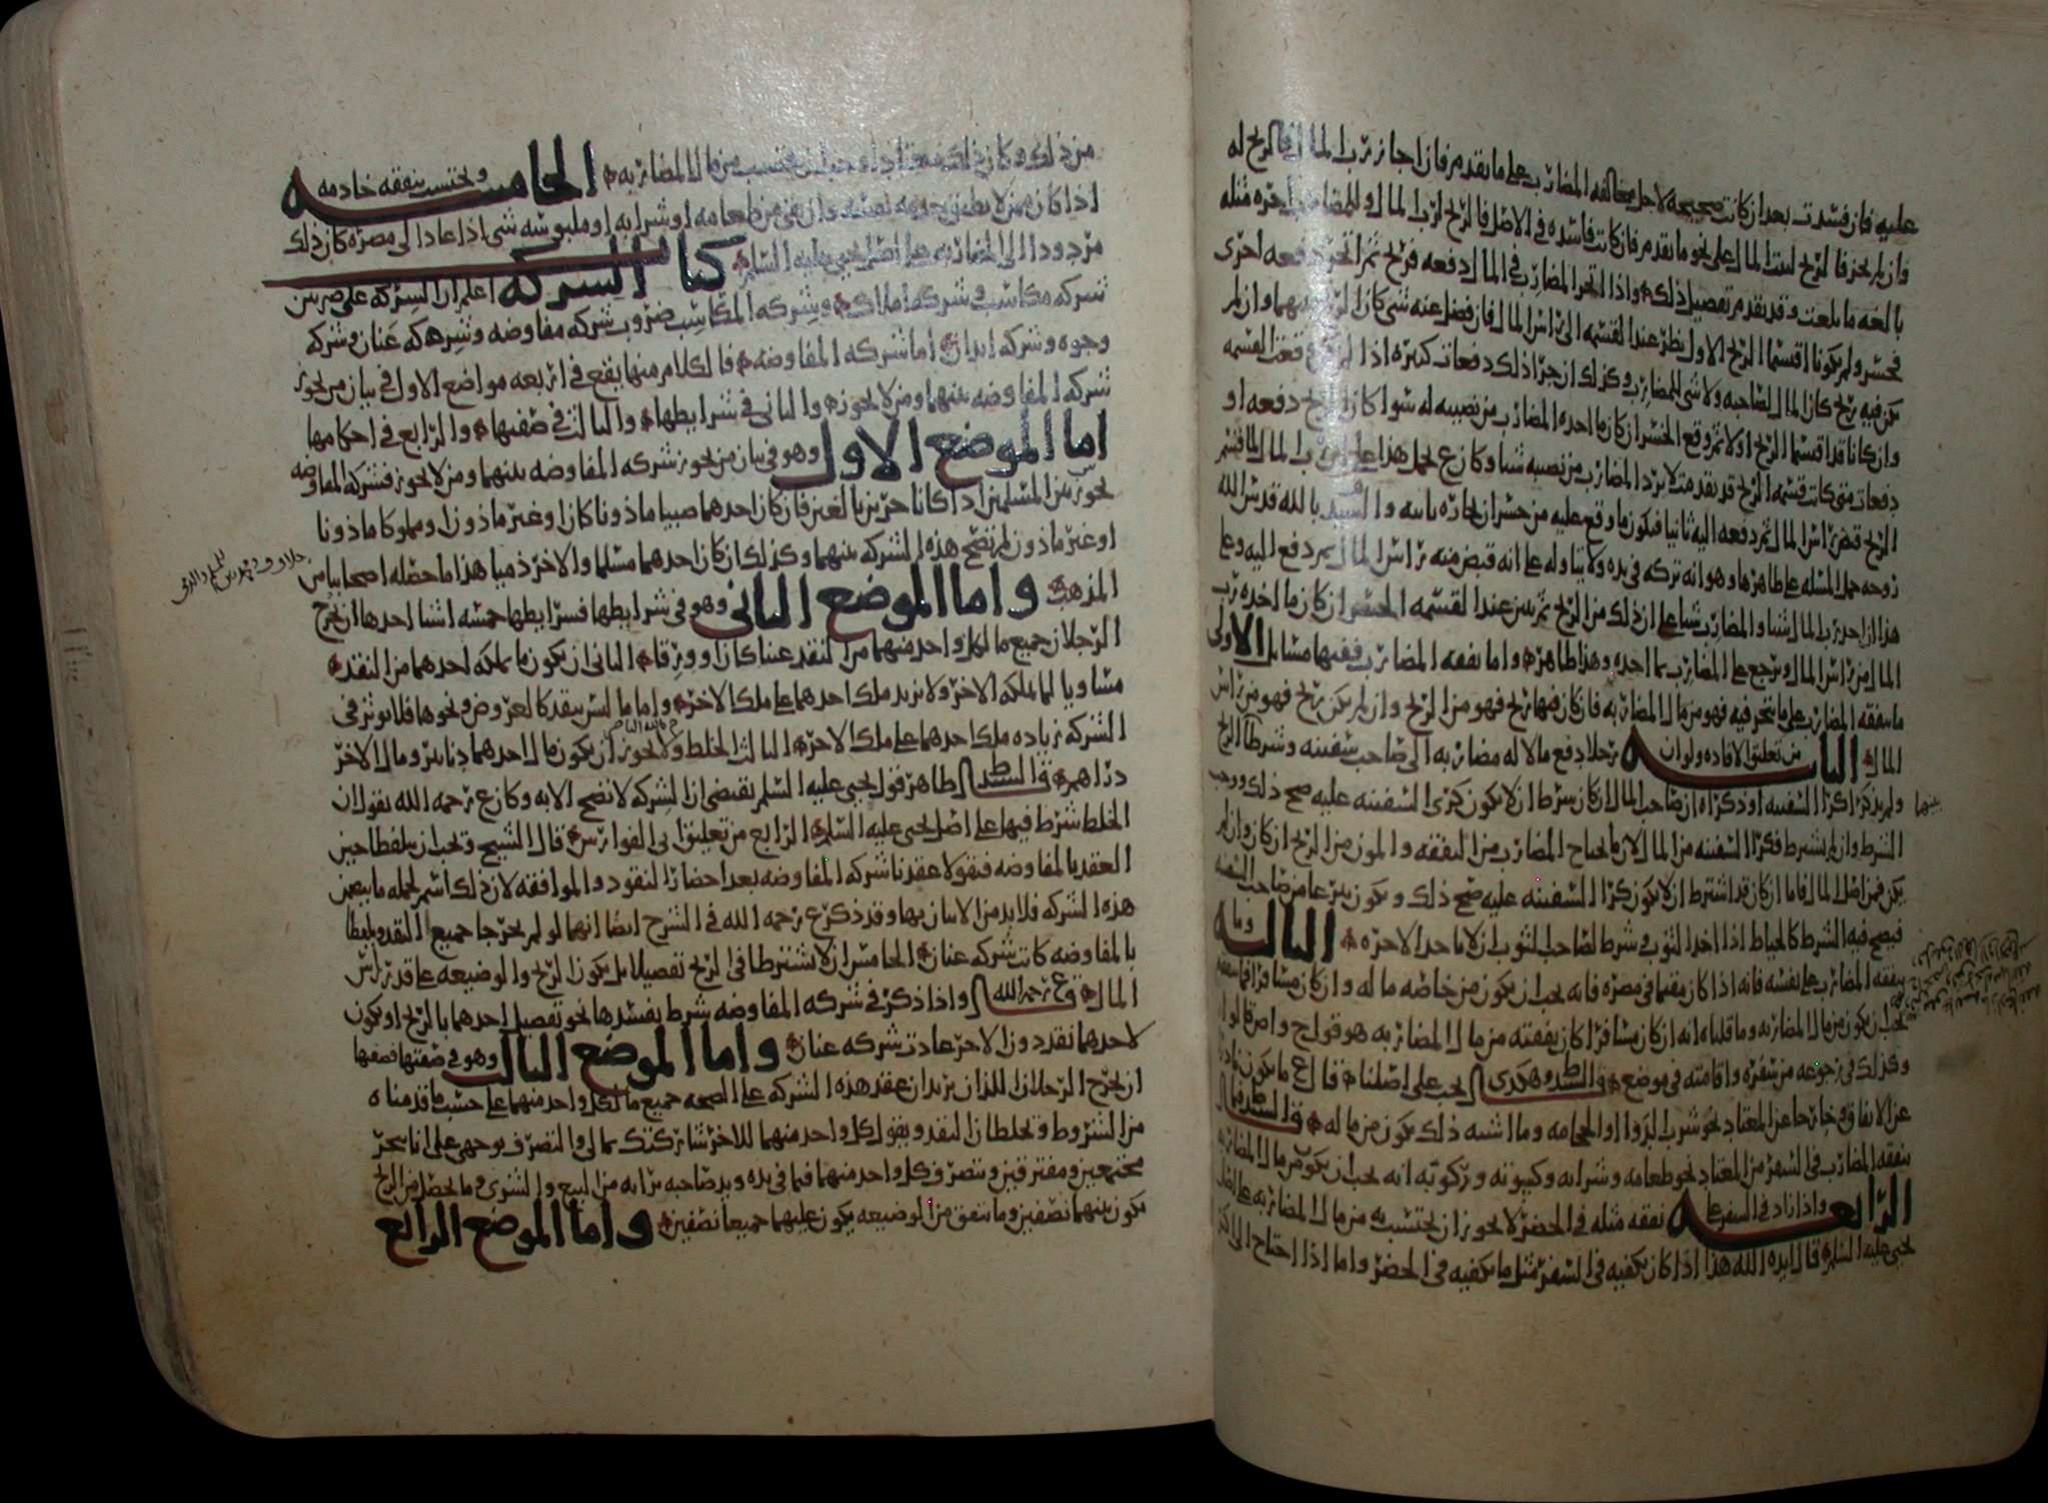 عليه فان فسدت بعد ان كانت صحيحه لاجل مخالفه المضارب على ما تقدم فان اجاز رب المال فالربح له
وان لم يجز فالربح لبيت المال على نحو ما تقدم فان كانت فاسده في الاصل فالربح لرب المال وللمضارب اجره مثله
بالغه ما بلغت وقد تقدم تفصيل ذلك واذا اتجر المضارب في المال دفعه فربح ثم اتجر دفعه اخرى
فخسر ولم يكونا اقتسما الربح الاول نظر عند القسمه الى راس المال فان فضل عنه شي كان الربح بينهما وان لم
يكن فيه ربح كان المال لصاحبه ولا شي للمضارب وكذلك ان جرا ذلك دفعات كثيره اذا لم تقع القسمه
وان كانا قد اقتسما الربح اولا ثم وقع الخسران كان ما اخذه المضارب من نصيبه له سوا كان الربح دفعه او
دفعات متى كانت قسمه الربح قد تقدمت لا يرد المضارب من نصيبه شيا وكان ع يحمل هذا على ان رب المال لما اقتسم
الربح قبض راس المال ثم دفعه اليه ثانيا فيكون ما وقع عليه من خسران تجاره ثانيه والسيد بالله قدس الله
روحه حمل المسله على ظاهرها وهو انه تركه في يده ولا يتاوله على انه قبض منه راس المال ثم دفع اليه وعلى
هذا ان اخذ رب المال شيا والمضارب شيا على ان ذلك من الربح ثم تبين عند القسمه الخسران كان ما اخذه رب
المال من راس المال ويرجع على المضارب بما اخذه وهذا ظاهر واما نفقه المضارب ففيها مسايل الاولى
ما ينفقه المضارب على ما يتجر فيه فهو من مال المضاربه فان كان فيها ربح فهو من الربح وان لم يكن ربح فهو من راس
المال الثانيه من تعليق الافاده ولو ان رجلا دفع مالا له مضاربه الى صاحب سفينه وشرطا الربح
ولم يذكرا كرا السفينه او ذكراه ان صاحب المال ان كان شرط ان لا يكون كرى السفينه عليه صح ذلك ووجب
الشرط وان لم يشترط فكرا السفينه من المال لان ما يحتاج المضارب من النفقه والمون من الربح ان كان وان لم
يكن فمن اصل المال فاما ان كان قد اشترط ان لا يكون كرا السفينه عليه صح ذلك ويكون تبرعا من صاحب السفينه
فيصح فيه الشرط كالخياط اذا اخذ الثوب في شرط لصاحب الثوب ان لا ياخذ الاجره الثالثه وما
ينفقه المضارب على نفسه فانه اذا كان مقيما في مصره فانه يجب ان يكون من خاصه ماله وان كان مسافرا فما ينفقه
يجب ان يكون من مال المضاربه وما قلناه انه ان كان مسافرا كان نفقته من مال المضاربه هو قول ح وص قالوا
وكذلك في رجوعه من سفره واقامته في موضع قال ط وهكذى يجب على اصلنا قال ع ما يكون
عن الانفاق خارجا عن المعتاد نحو شرب الدوا او الحجامه وما اشبه ذلك يكون من ماله قال ط فمال
نفقه المضارب في السفر من المعتاد نحو طعامه وشرابه وكسوته وركوبه انه يجب ان يكون من مال المضاربه
الرابعه واذا زاد في السفر على نفقه مثله في الحضر لا يجوز ان يحتسب به من مال المضاربه على اصل
يحيى عليه السلم قال ايده الله هذا اذا كان يكفيه في السفر مثل ما يكفيه في الحضر واما اذا احتاج الى اكثر
من ذلك وكان ذلك معتادا وجب ان يحتسب من مال المضاربه الخامسه ويحتسب بنفقه خادمه
اذا كان ممن لا يطيق خدمه نفسه وان بقي من طعامه او شرابه او ملبوسه شي اذا عاد الى مصره كان ذلك
مردودا الى المضاربه على اصل يحيى عليه السلم كتاب الشركه اعلم ان الشركه على ضربين
شركه مكاسب وشركه املاك وشركه المكاسب ضروب شركه مفاوضه وشركه عنان وشركه
وجوه وشركه ابدان اما شركه المفاوضه فالكلام منها يقع في اربعه مواضع الاول في بيان من يجوز
شركه المفاوضه بينهما ومن لا يجوز والثاني في شرايطها والثالث في صفتها والرابع في احكامها
اما الموضع الاول وهو في بيان من يجوز شركه المفاوضه بينهما ومن لا يجوز فشركه المفاوضه
تجوز بين المسلمين اذا كانا حرين بالغين فان كان احدهما صبيا ماذونا كان او غير ماذون او مملوكا ماذونا
او غير ماذون لم تصح هذه الشركه بينهما وكذلك ان كان احدهما مسلما والاخر ذميا هذا ما حصله اصحابنا من
المذهب واما الموضع الثاني وهو في شرايطها فشرايطها خمسه اشيا احدها ان يخرج
الرجلان جميع ما لكل واحد منهما من النقد عينا كان او ورقا الثاني ان يكون ما يملكه احدهما من النقد
مساويا لما يملكه الاخر ولا يزيد ملك احدهما على ملك الاخر واما ما ليس بنقد كالعروض ونحوها فلا يوثر في
الشركه زياده ملك احدهما على ملك الاخر الثالث الخلط ولا يجوز ان يكون مال احدهما دنانير ومال الاخر
دراهم قال السيد ط ظاهر قول يحيى عليه السلم يقتضي ان الشركه لا تصح الا به وكان ع رحمه الله يقول ان
الخلط شرط فيها على اصل يحيى عليه السلم الرابع من تعليق ابي الفوارس قال الشيخ ويجب ان يلفظا حين
العقد بالمفاوضه فيقولا عقدنا شركه المفاوضه بعد احضار النقود والموافقه لان ذلك اسم لجمله ما يتضمن
هذه الشركه فلا بد من الابيان بها وقد ذكر ع رحمه الله في الشرح ايضا انهما لو لم يخرجا جميع النقد ولفظا
بالمفاوضه كانت شركه عنان الخامس ان لا يشترطا في الربح تفصيلا بل يكون الربح والوضيعه على قدر راس
المال قال ع رحمه الله واذا ذكر في شركه المفاوضه شرط يفسدها نحو تفضيل احدهما بالربح او يكون
لاحدهما نقد دون الاخر عادت شركه عنان واما الموضع الثالث وهو في صفتها فصفتها
ان يخرج الرجلان اللذان يريدان عقد هذه الشركه على الصحه جميع ما لكل واحد منهما على حسب ما قدمناه
من الشروط ويخلطان النقد ويقول كل واحد منهما للاخر شاركتك بمالي والتصرف بوجهي على انا نتجر
مجتمعين ومفترقين ويتصرف كل واحد منهما فيما في يده ويد صاحبه برايه من البيع والشرى وما يحصل من الربح
يكون بينهما نصفين وما يتفق من الوضيعه يكون عليهما جميعا نصفين واما الموضع الرابع